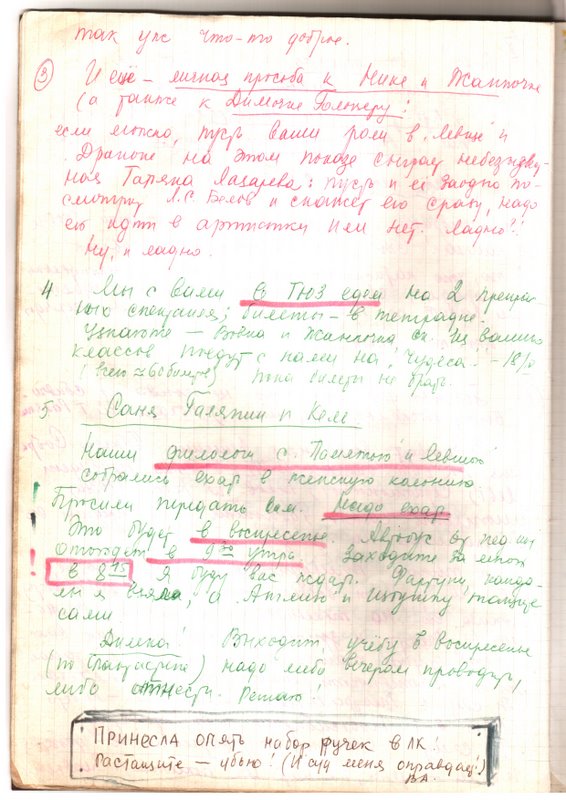 так уж что-то доброе.
③ И ещё – личная просьба к Нике и Жанночке
(а также к Димочке
если можно, пусть ваши роли в „Левше" и
на этом показе сыграет небезызвест-
ная Лазарева: пусть и её заодно по-
смотрит Л.С. Белов и скажет ей сразу, надо
ей идти в артистки или нет. Ладно?!
Ну, и ладно.
4 Мы с вами в ТЮЗ едем на 2 прекрас
ных спектакля; билеты – в тетрадке.
– Вовка и Жанночка из ваших
классов поедут с нами на „Чудеса" –
(всего ≈ 60 билетов) пока билеты не брать.
5 Саня Галяпин и
Наши филологи с „Памятью" и Левшой
собрались ехать в женскую колонию
Просили передать вам. Надо ехать
Это будет в воскресенье. Автобус от пед ин
отходит в 9 утра. Заходите за мной
в 8 15, я буду вас ждать. Фартуки,
я взяла, а Англию и тащите
сами
Димка! Выходит, учёбу в воскресенье
(по надо либо вечером проводить,
либо отнести. Решаю!
ПРИНЕСЛА ОПЯТЬ набор ручек в ЛК!
Растащите – убью! (И суд меня оправдает!)
ВА.